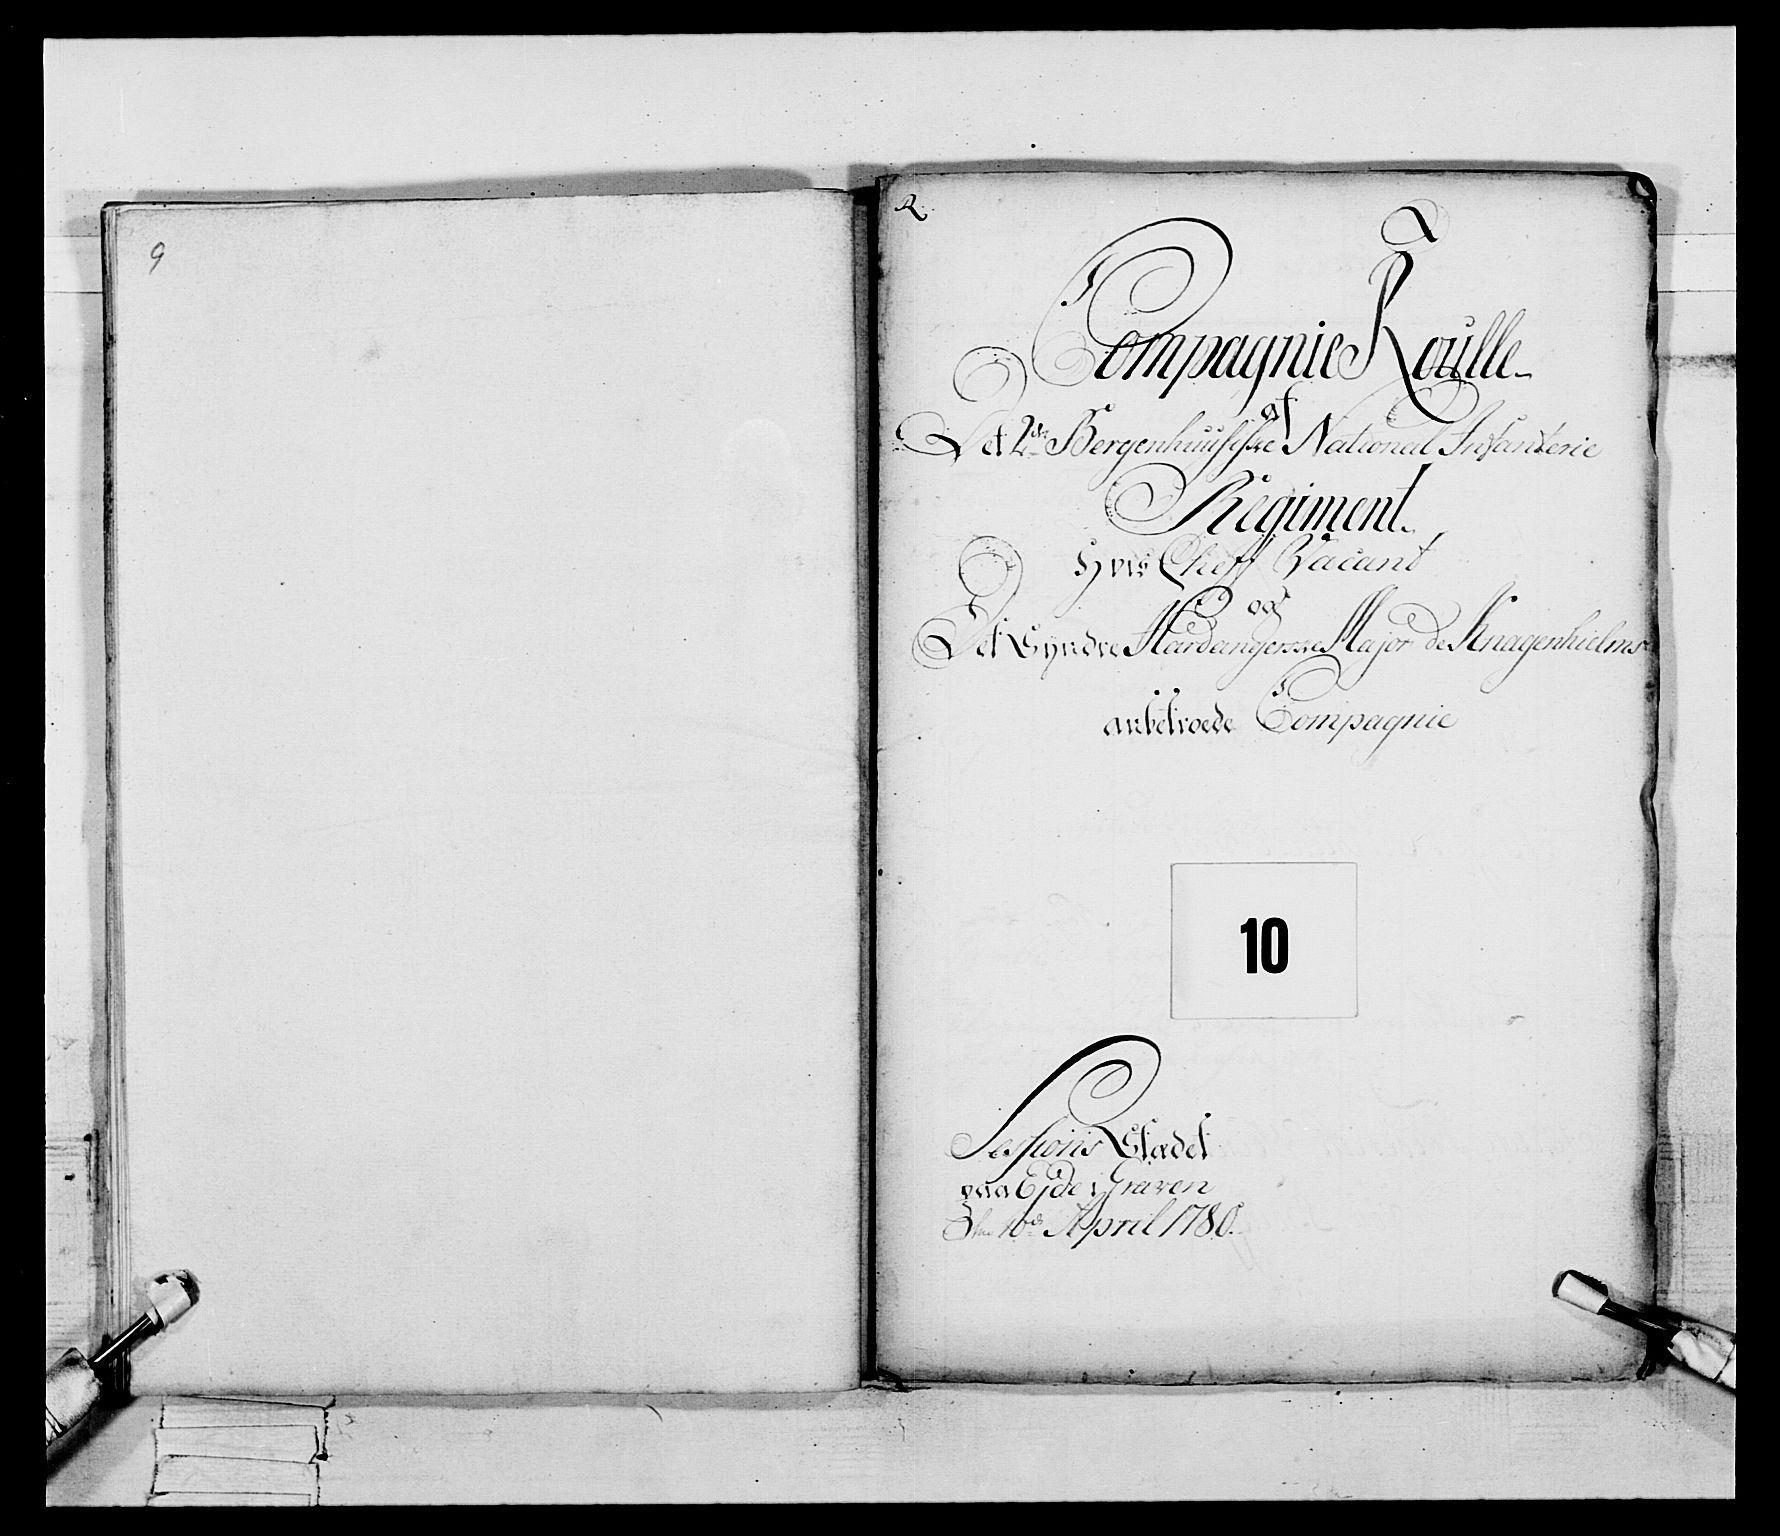 9
2
Compagnie Roulle
af
Det 2de Bergenhuusiske National Infanterie
Regiment.
Hvis Cheff Vacant
og
Det Syndre Hardangerske Major de Knagenhielms
anbetroede Compagnie
10
Sessions Stædet
paa Ejde i Graven
den 10de April 1780.